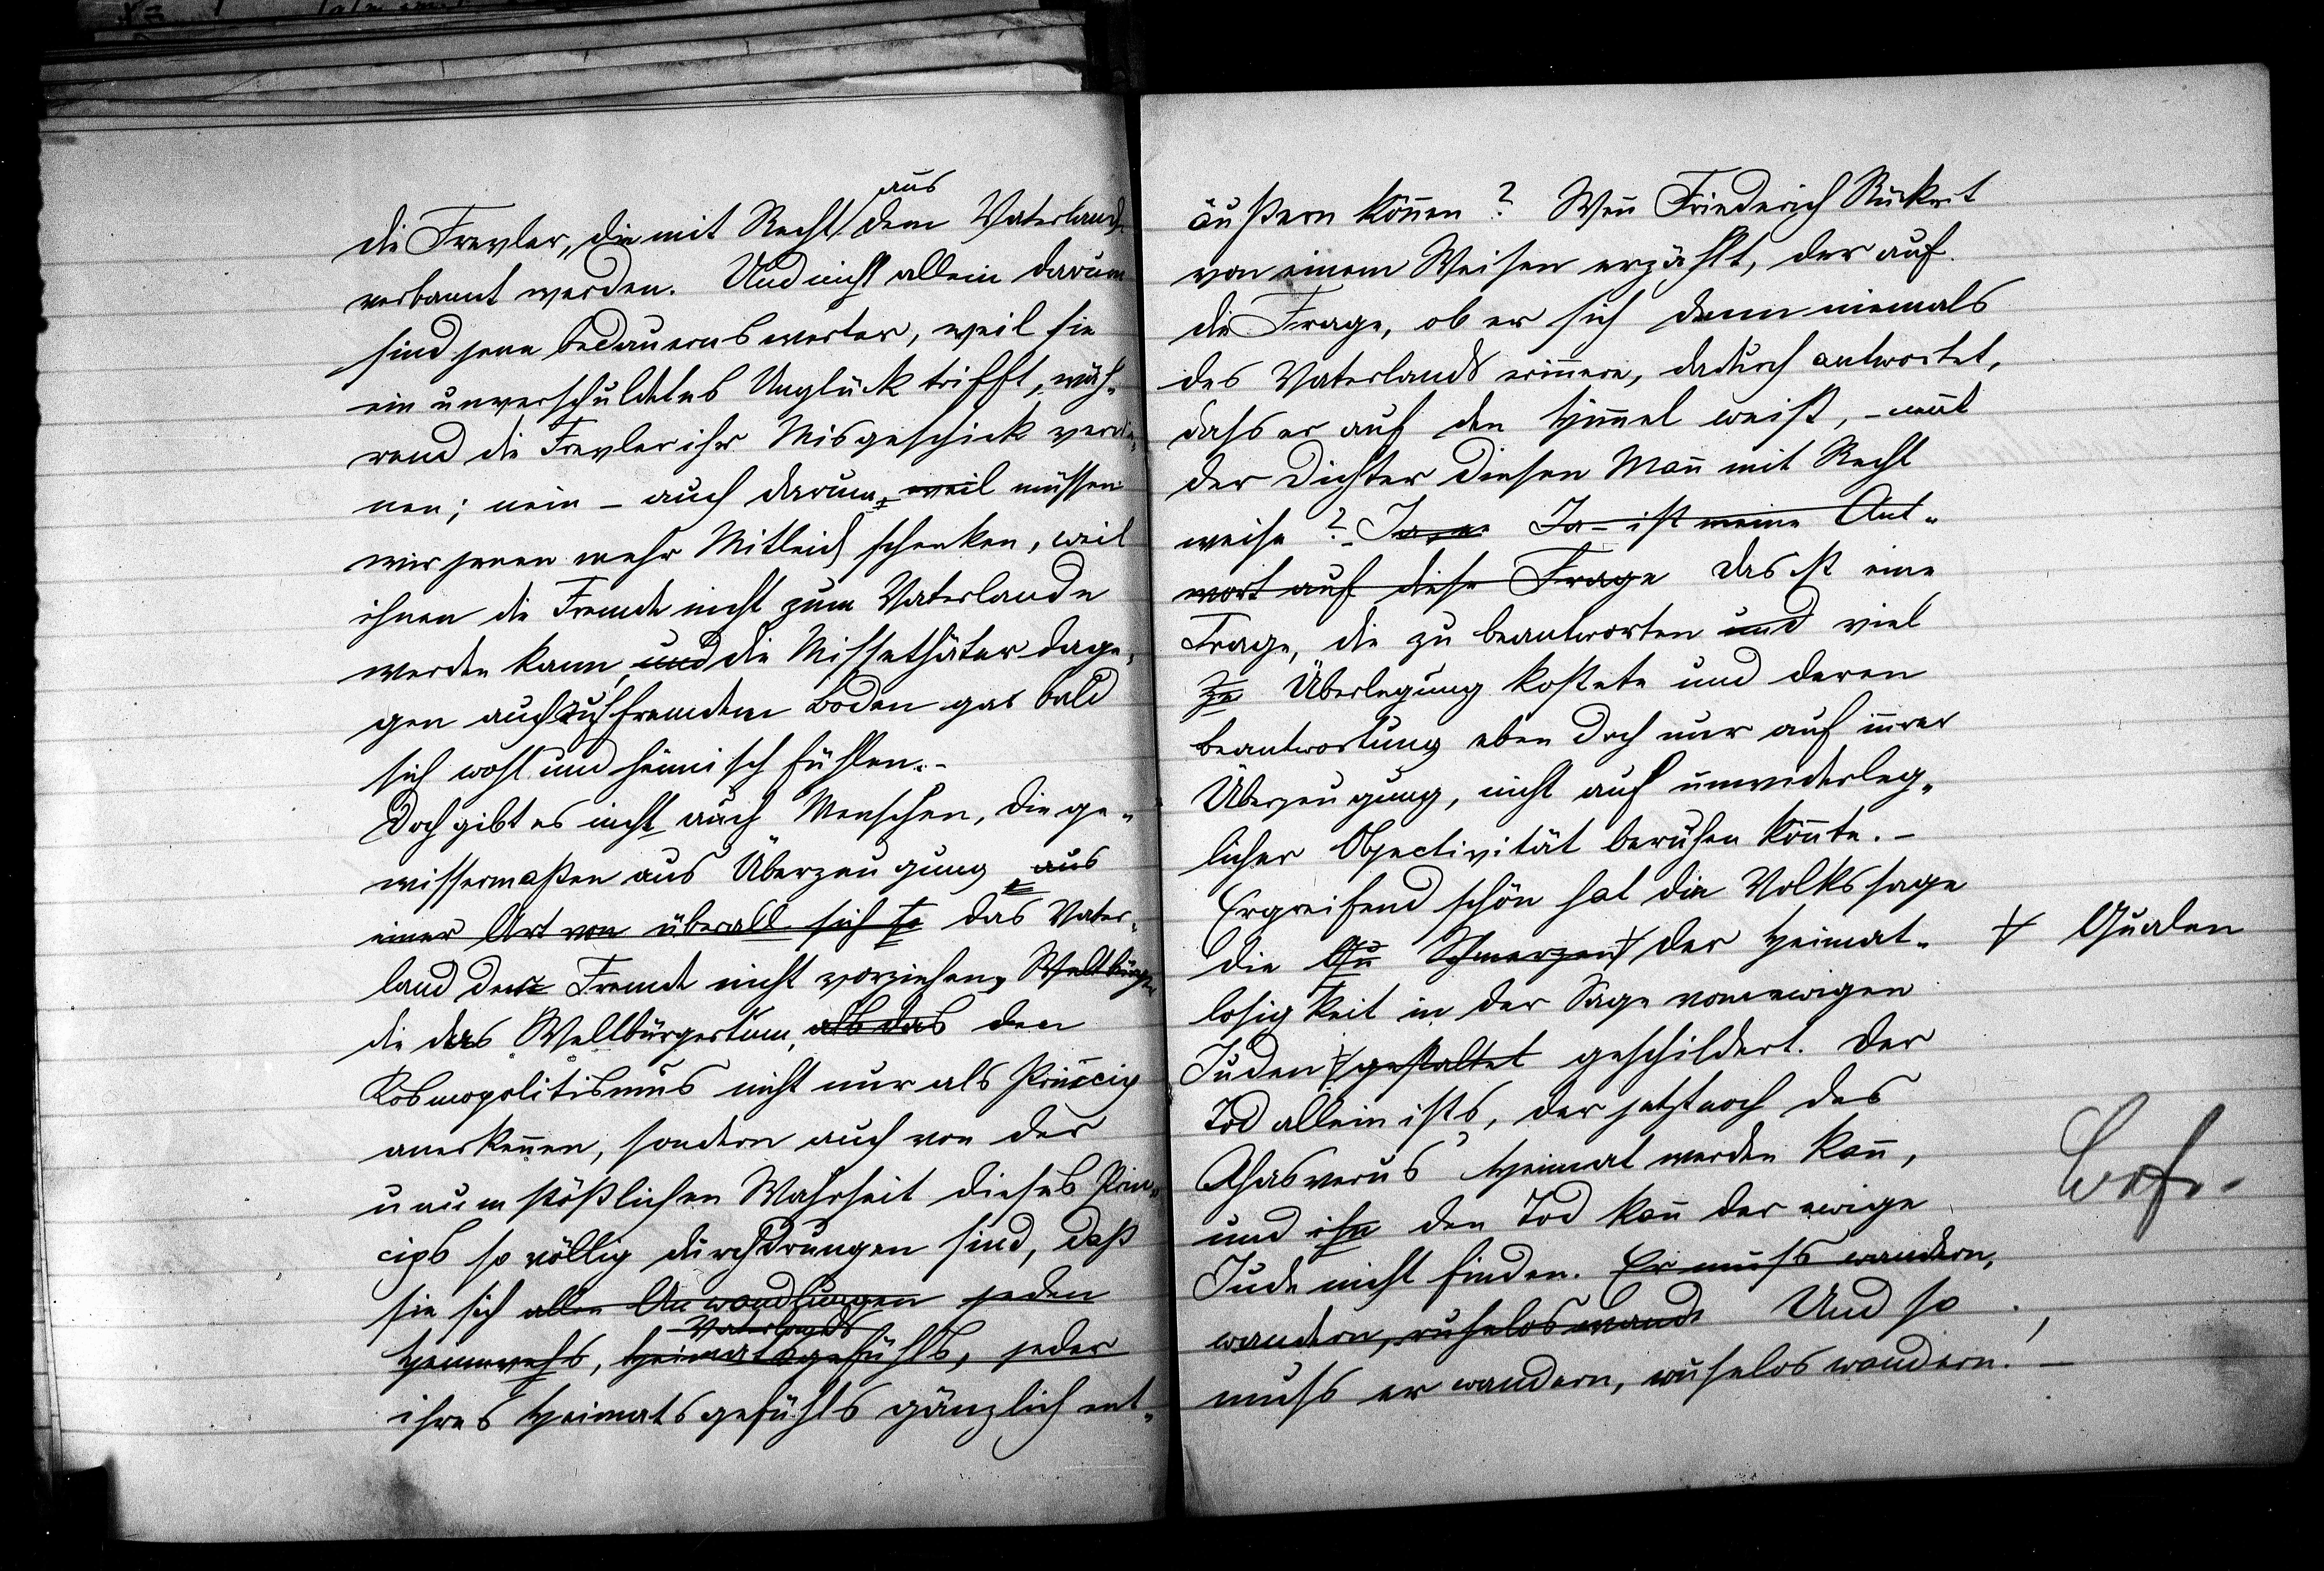 aus
die Frevler, die mit Recht dem Vaterlande
verbannt werden. Und nicht allein darum
sind jene bedauernswerter, weil sie
ein unverschuldetes Unglück trifft, wäh-
rend die Frevler ihr Misgeschick verdie-
nen; nein – auch darum, weil müssen
wir jenen mehr Mitleid schenken, weil
ihnen die Fremde nicht zum Vaterlande
werden kann, und die Missethäter dage-
gen auch auf fremdem Boden gar bald
sich wohl und heimisch fühlen. –
Doch gibt es nicht auch Menschen, die ge-
wissermaßen aus Überzeugung aus
einer Art von überall sich das Vater-
land der Fremde nicht vorziehen, Weltbürger
die das Weltbürgertum, als das den
Kosmopolitismus nicht nur als Princip
anerkenn̄en, sondern auch von der
unumstößlichen Wahrheit dieses Prin-
cips so völlig durchdrungen sind, daß
sie sich allen Anwandlungen jeden
Vaterlands
Heimwehs, Heimatsgefühls, jeder
ihres Heimatsgefühls gänzlich ent-
äußern kön̄en? Wen̄ Friederich Rückert
von einem Weisen erzählt, der auf
die Frage, ob er sich denn niemals
des Vaterlands erinnere, dadurch antwortet,
dass er auf den Him̄el weist, – nen̄t
der Dichter diesen Man̄ mit Recht
weise? – Ja – ist meine Ant-
wort auf diese Frage Das ist eine
Frage, die zu beantworten und viel
zu Überlegung kostete und deren
Beantwortung eben doch nur auf in̄rer
Überzeugung, nicht auf unwiderleg-
licher Objectivität beruhen kön̄te. –
Ergreifend schön hat die Volkssage
die Qu Schmerzen der Heimat-
Qualen
losigkeit in der Sage vom ewigen
Juden gestaltet geschildert. Der
Tod allein ists, der jetzt noch des
Ahasverus' Heimat werden kan̄,
und ihn den Tod kan̄ der ewige
Jude nicht finden. Er muss wandern,
wandern, ruhelos wand Und so
muss er wandern, ruhelos wandern! –